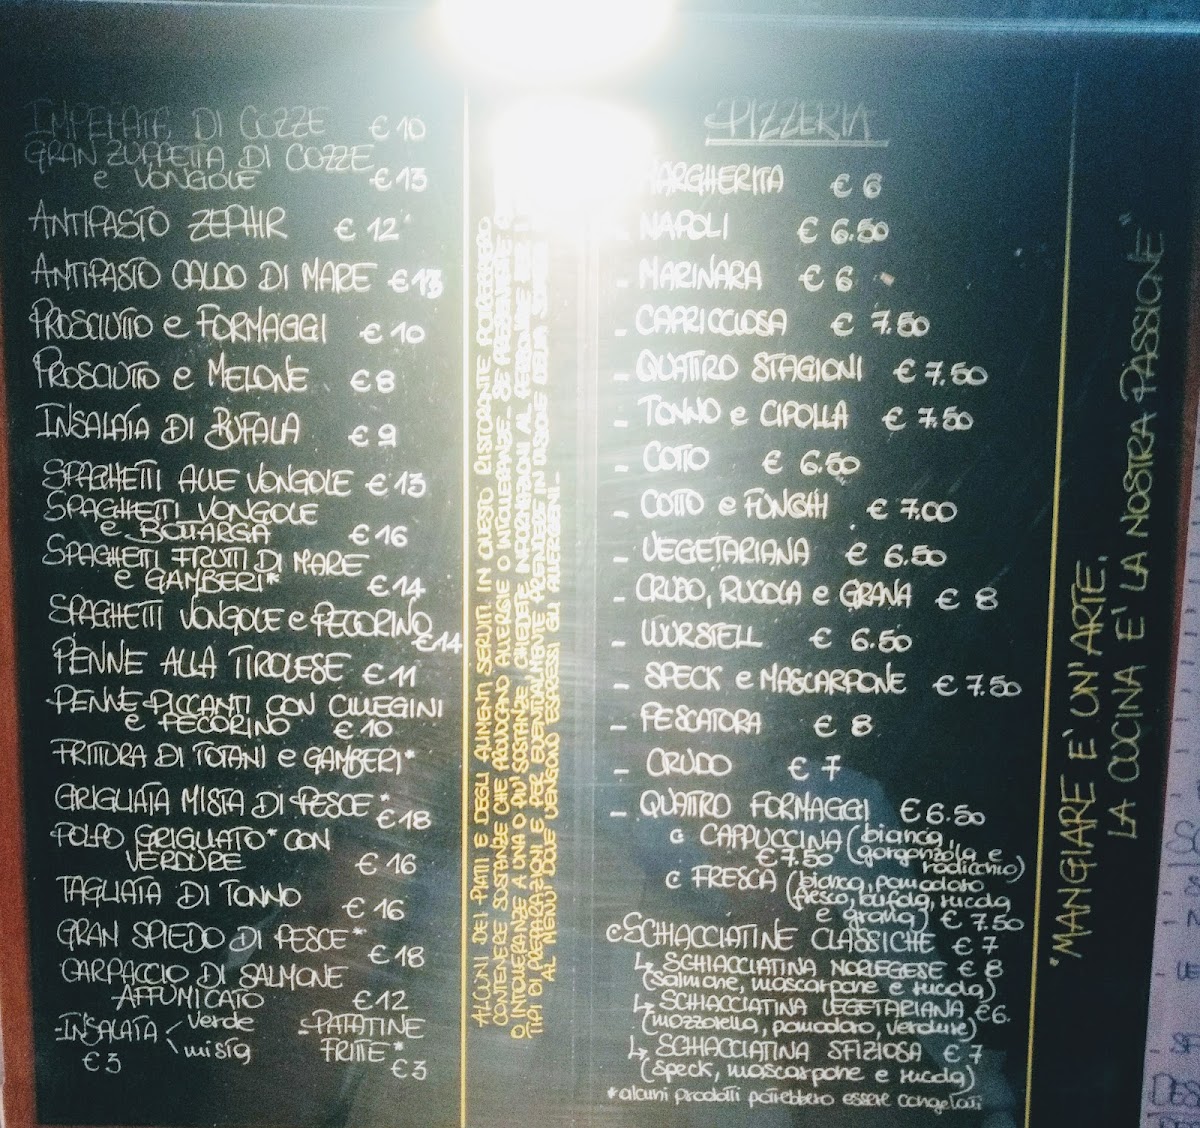 IMPEPATA DI COZZE €10
GRAN ZUPPETTA DI COZZE
e VONGOLE €13
ANTIPASTO ZEPHIR €12
ANTIPASTO CALDO DI MARE €13
PROSCIUTTO e FORMAGGI €10
PROSCIUTTO e MELONE €8
INSALATA DI BUFALA €9
SPAGHETTI ALLE VONGOLE €13
SPAGHETTI VONGOLE
e BOTTARGA €16
SPAGHETTI FRUTTI DI MARE
e GAMBERI* €14
SPAGHETTI VONGOLE e PECORINO
€14
PENNE ALLA TIROLESE €11
PENNE PICCANTI CON CILIEGINI
e PECORINO €10
FRITTURA DI TOTANI e GAMBERI*
GRIGLIATA MISTA DI PESCE*
€18
POLPO GRIGLIATO* CON
VERDURE €16
TAGLIATA DI TONNO
€16
GRAN SPIEDO DI PESCE*
€18
CARPACCIO DI SALMONE
AFFUMICATO €12
-INSALATA verde
mista
€3
-PATATINE
FRITTE*
€3
ALCUNI DEI PIATTI E DEGLI ALIMENTI SERVITI IN QUESTO RISTORANTE POTREBBERO
CONTENERE SOSTANZE CHE PROVOCANO ALLERGIE O INTOLLERANZE. SE
O INTOLLERANTE A UNA O PIU' SOSTANZE, CHIEDETE INFORMAZIONI AL PERSONALE
TIPI DI PREPARAZIONI E PER EVENTUALMENTE
AL MENÙ DOVE VENGONO ESPRESSI GLI ALLERGENI.
PIZZERIA
MARGHERITA €6
- NAPOLI €6.50
- MARINARA €6
- CAPRICCIOSA €7.50
- QUATTRO STAGIONI €7.50
- TONNO e CIPOLLA €7.50
- COTTO €6.50
- COTTO e FUNGHI €7.00
- VEGETARIANA €6.50
- CRUDO, RUCOLA e GRANA €8
- WURSTELL €6.50
- SPECK e MASCARPONE €7.50
- PESCATORA €8
- CRUDO €7
- QUATTRO FORMAGGI €6.50
CAPPUCCINA (bianca,
€7.50 gorgonzola e
radicchio)
FRESCA (bianca, pomodoro
fresco, bufala, rucola
e grana) €7.50
SCHIACCIATINE CLASSICHE €7
↳ SCHIACCIATINA NORVEGESE €8
(salmone, mascarpone e rucola)
↳ SCHIACCIATINA VEGETARIANA €6.
(mozzarella, pomodoro, verdure)
↳ SCHIACCIATINA SFIZIOSA €7
(speck, mascarpone e rucola)
*alcuni prodotti potrebbero essere congelati
"MANGIARE E' UN'ARTE.
LA CUCINA E' LA NOSTRA PASSIONE"